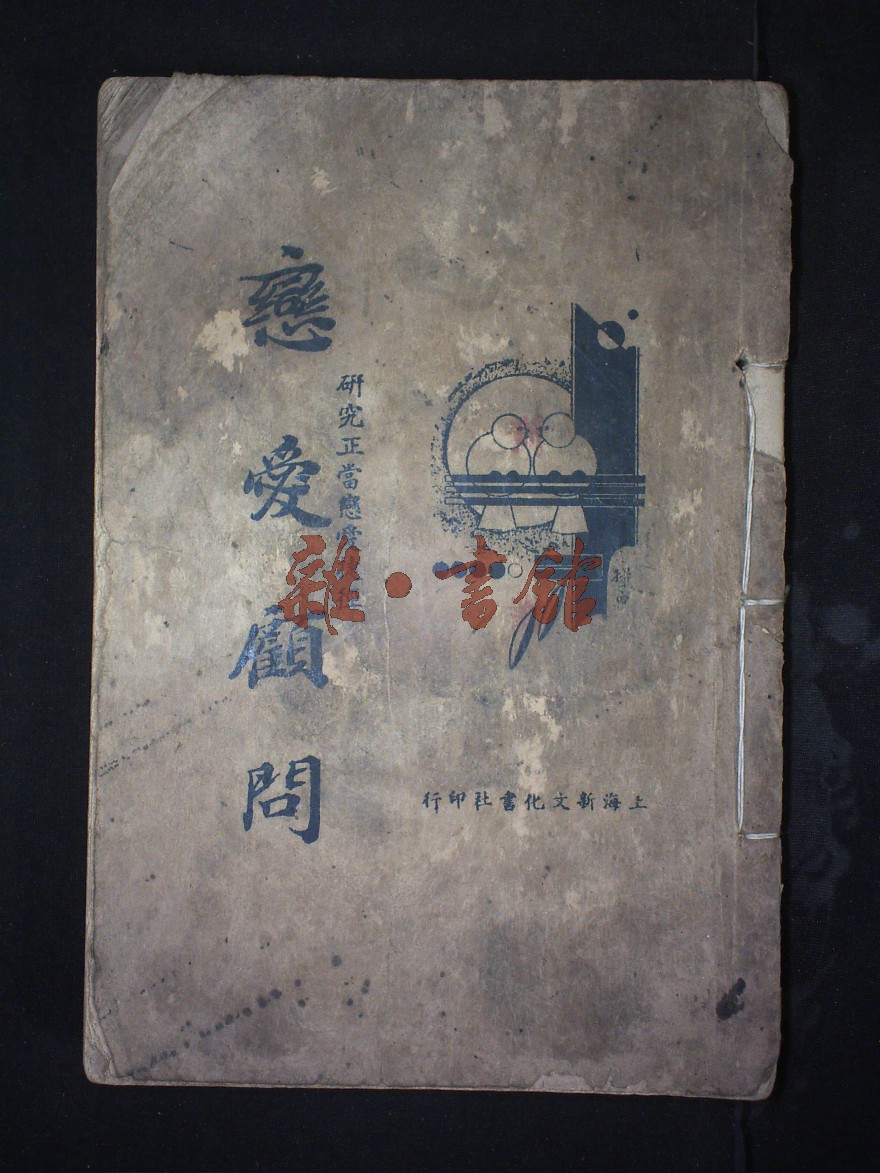 戀愛顧問
研究正當戀愛
上海新文化書社印行
雜·書館